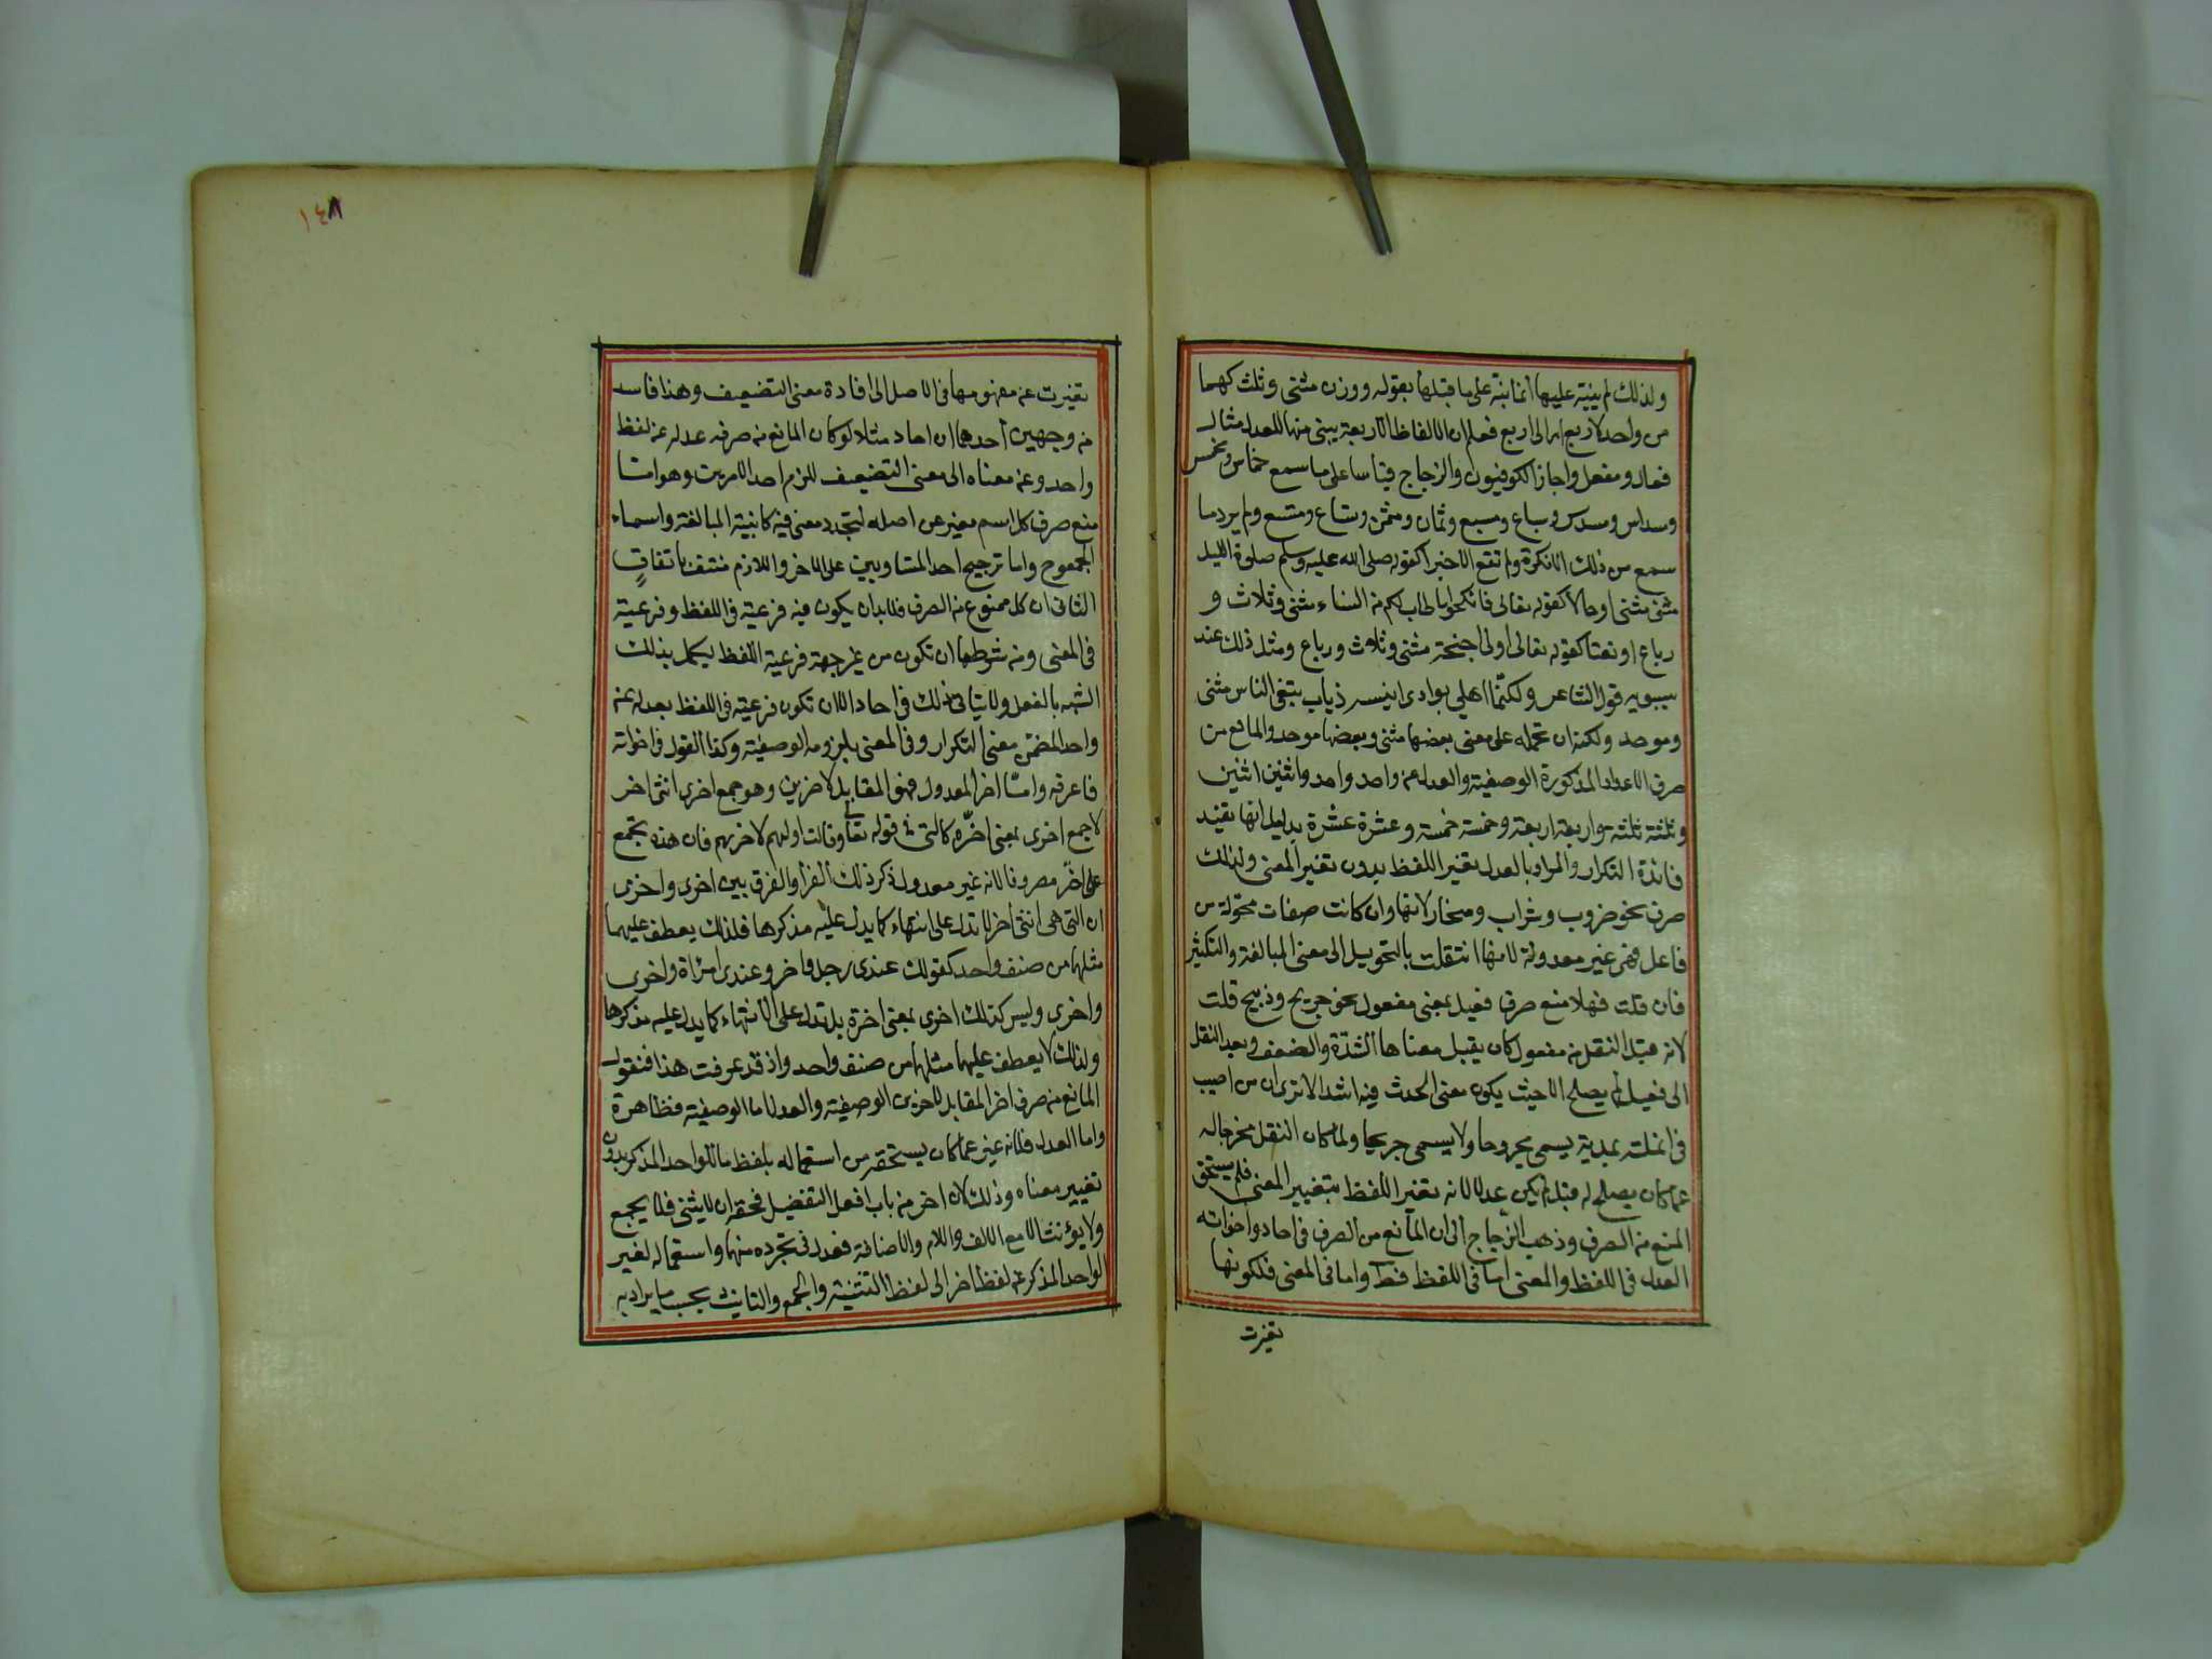 ولذلك لم ينبه عليها انما نبه على ما قبلها بقوله ووزن مثنى وثلث كهما
من واحد لاربع اى الى اربع فعلم ان الالفاظ الاربعة يبنى منها للعدل مثال
فعال ومفعل واجاز الكوفيون والزجاج قياسا على ما سمع خماس ومخمس
وسداس ومسدس وسباع ومسبع وثمان ومثمن وتساع ومتسع ولم يرد ما
سمع من ذلك الا نكرة ولم تقع الا خبرا كقوله صلى الله عليه وسلم صلوة الليل
مثنى مثنى او حالا كقوله تعالى فانكحوا ما طاب لكم من النساء مثنى وثلاث و
رباع او نعتا كقوله تعالى اولى اجنحة مثنى وثلاث ورباع ومثل ذلك عند
سيبويه قول الشاعر ولكنما اهلي بوادى انيسه ذياب تبتغي الناس مثنى
وموحد ولك ان تحمله على معنى بعضها مثنى وبعضها موحد والمانع من
صرف الاعداد المذكورة الوصفية والعدل عن واحد واحد واثنين اثنين
وثلثة ثلثة واربعة اربعة وخمسة خمسة وعشرة عشرة بدليل انها تفيد
فائدة التكرار والمراد بالعدل تغير اللفظ بدون تغير المعنى ولذلك
صرف نحو ضروب وشراب ومنحار لانها وان كانت صفات محولة من
فاعل فهى غير معدولة لانها انتقلت بالتحويل الى معنى المبالغة والتكثير
فان قلت فهلا منع صرف فعيل بمعنى مفعول نحو جريح وذبيح قلت
لانه قبل النقل من مفعول كان يقبل معناها الشدة والضعف وبعد النقل
الى فعيل لم يصلح الا حيث يكون معنى الحدث فيه اشد الا ترى ان من اصيب
فى انملته بمدية يسمى مجروحا ولا يسمى جريحا ولما كان النقل مخرجا له
عما كان يصلح له قبل لم يكن عدلا لانه تغير اللفظ بتغيير المعنى فلم يستحق
المنع من الصرف وذهب الزجاج الى ان المانع من الصرف فى احاد واخواته
العدل فى اللفظ والمعنى اما فى اللفظ فظ واما فى المعنى فلكونها
تغيرت
١٤٨
تغيرت عن مفهومها فى الاصل الى افادة معنى التضعيف وهذا فاسد
من وجهين احدها ان احاد مثلا لو كان المانع من صرفه عدله عن لفظ
واحد وعن معناه الى معنى التضعيف للزم احد الامرين وهو اما
منع صرف كل اسم مغير عن اصله لتجدد معنى فيه كابنية المبالغة واسماء
الجموع واما ترجيح احد المتساويين على الاخر واللازم منتف باتفاق
الثانى ان كل ممنوع من الصرف فلابد ان يكون فيه فرعية فى اللفظ وفرعية
فى المعنى ومن شرطها ان تكون من غير جهة فرعية اللفظ ليكمل بذلك
الشبه بالفعل ولا يتاتى ذلك فى احاد الا ان تكون فرعيته فى اللفظ بعدله عن
واحد المضمن معنى التكرار وفى المعنى بلزومه الوصفية وكذا القول فى اخواته
فاعرفه واما اخر المعدول فهو المقابل لاخرين وهو جمع اخرى انثى اخر
لا جمع اخرى بمعنى اخرة كالتى فى قوله تعالى وقالت اولهم لاخريهم فان هذه تجمع
على اخر مصروفا لانه غير معدول ذكر ذلك الفرا والفرق بين اخرى واخرى
ان التى هى انثى اخر لا تدل على انتهاء كما يدل عليه مذكرها فلذلك يعطف عليهما
مثلها من صنف واحد كقولك عندى رجل واخر وعندى امراة واخرى
واخرى وليس كذلك اخرى بمعنى اخرة بل تدل على الانتهاء كما يدل عليه مذكرها
ولذلك لا يعطف عليها مثلها من صنف واحد واذ قد عرفت هذا فنقول
المانع من صرف اخر المقابل لاخرين الوصفية والعدل اما الوصفية فظاهرة
واما العدل فلانه غير عما كان يستحقه من استعماله بلفظ ما للواحد المذكر بدون
تغيير معناه وذلك لان اخر من باب افعل التفضيل فحقه ان لا يثنى ولا يجمع
ولا يؤنث الا مع الالف واللام والاضافة فعدل فى تجرده منها واستعماله لغير
الواحد المذكر عن لفظ اخر الى لفظ التثنية والجمع والتانيث بحسب ما يراد به